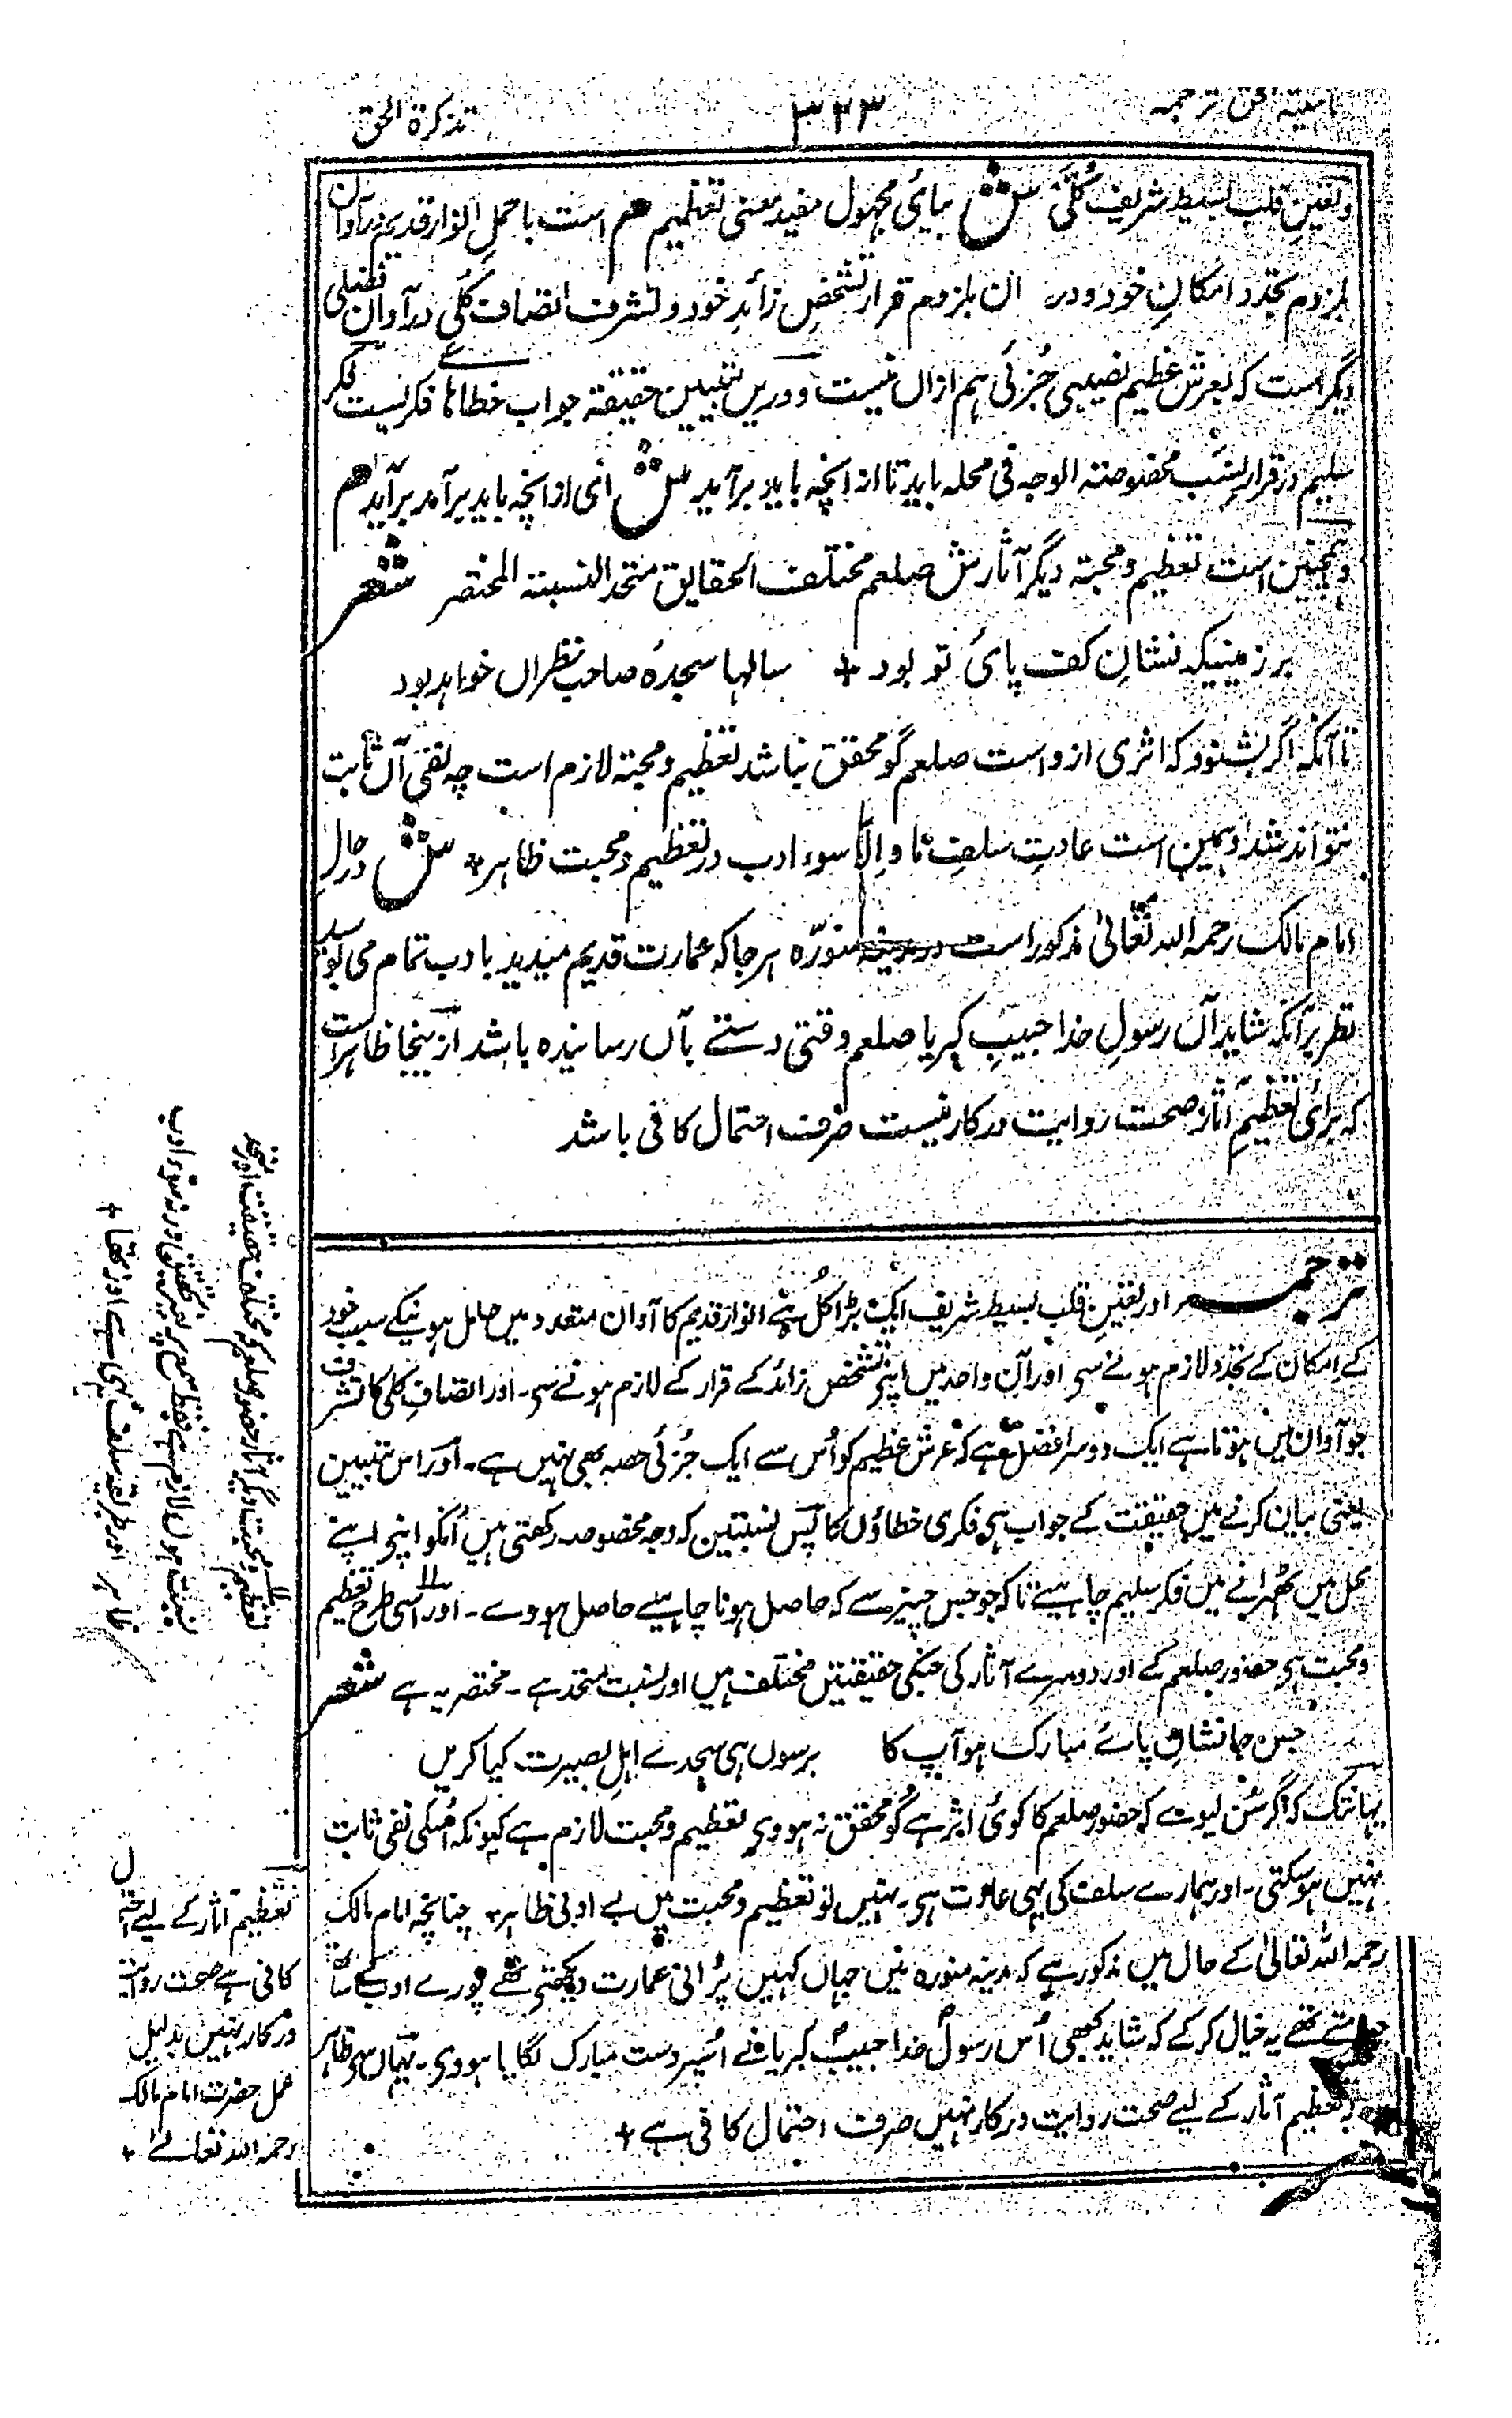 ترجمہ
۳۲۳
تذکرۃ الحق
وتعینِ قلب بسیط شریف کُلّیَ ش بیائ مجہول مفید معنی تعظیم هم است باحملِ انوار قدیم در آوان
بلزوم تجدد امکانِ خود و در آن بلزوم قرار تشخصِ زائدِ خود و تشرفت انصاف کُلّی در آوان فضلی
دیگر است کہ بعرش عظیم نصیبی جُزئی ہم ازاں نیست و دریں تبیین حقیقۃ جواب خطاہا فکریست فکر
سلیم در قرار نِسَب مخصوصۃ الوجہ فی محلہ باید تا از انچہ باید برآید ش ای از انچہ باید برآمد برآید هم
وہمچنین است تعظیم و محبتہ دیگر آثارش صلعم مختلف الحقایق متحد النسبتہ المختصر شعر
بر زمینیکہ نشانِ کف پائ تو بود + سالہا سجدہ صاحب نظراں خواہد بود
تا آنکہ اگر بشنود کہ اثری از و است صلعم گو محقق نباشد تعظیم و محبتہ لازم است چہ نفی آں ثابت
نتواند شد و ہمین است عادتِ سلفِ ما و اِلّا سوء ادب در تعظیم و محبت ظاہر + ش در حالِ
امام مالک رحمہ اللہ تعالیٰ مذکور است در مدینہ منورّہ ہر جا کہ عمارت قدیم میدید بادب تمام می بوسید
نظر برآنکہ شاید آں رسولِ خدا حبیبِ کبریا صلعم وقتی دستے بآں رسانیدہ باشد ازینجا ظاہر است
کہ برائ تعظیمِ آثار صحت روایت درکار نیست صرف احتمال کافی باشد
ترجمہ اور تعینِ قلب بسیط شریف ایک بڑا کُل ہے انوار قدیم کا آوان متعدد میں حامل ہونیکے سبب خود
کے اِمکان کے تجدد لازم ہونے سی اور آنِ واحد میں اپنی تشخص زائد کے قرار کے لازم ہونے سی۔ اور انصافِ کلی کا تشرف
جو آوان میں ہوتا ہے ایک دوسرا فضل ہے کہ عرش عظیم کو اُس سے ایک جُزئی حصہ بھی نہیں ہے۔ اور اس تبیین
یعنی بیان کرنے میں حقیقت کے جواب ہی فکری خطاؤں کا پس نسبتین کہ وجہ مخصوصہ رکھتی ہیں اُنکو اپنی اپنے
محل میں ٹھرانے میں فکر سلیم چاہیئے تاکہ جو جس چیز سے کہ حاصل ہونا چاہیئے حاصل ہووے۔ اور اسی طرح تعظیم
ومحبت ہی حضور صلعم کے اور دوسرے آثار کی جنکی حقیقتیں مختلف ہیں اور نسبت متحد ہے۔ مختصر یہ ہے شعر
جس جا نشانِ پائے مبارک ہو آپ کا برسوں ہی سجدے اہلِ بصیرت کیا کریں
یہانتک کہ اگر سُن لیوے کہ حضور صلعم کا کوئی اثر ہے گو محقق نہ ہووی تعظیم و محبت لازم ہے کیونکہ اُسکی نفی ثابت
نہیں ہوسکتی۔ اور ہمارے سلف کی یہی عادت ہی۔ نہیں تو تعظیم و محبت میں بے ادبی ظاہر + چنانچہ امام مالک
رحمہ اللہ تعالیٰ کے حال میں مذکور ہے کہ مدینہ منورہ میں جہاں کہیں پُرانی عمارت دیکھتی تھے پورے ادب کے ساتھ
چومتے تھے یہ خیال کرکے کہ شاید کبھی اُس رسول خدا حبیب کبریا نے اُسپر دست مبارک لگایا ہووی۔ یہاں سی ظاہر
تعظیم آثار کے لیے صحت روایت درکار نہیں صرف احتمال کافی ہے +
تعظیم ومحبت دیگر آثار حضور صلعم کہ مختلف حقیقت اور متحد
نسبت ہوں لازم ہے فقط سُنکر بغیر تحقیق ورنہ سوء ادب
ظاہر اور طریقہ سلف یہی ہے اور تھا +
تعظیم آثار کے لیے
کافی ہے صحت روایت
درکار نہیں بدلیل
عمل حضرت امام مالک
رحمہ اللہ تعالےٰ +